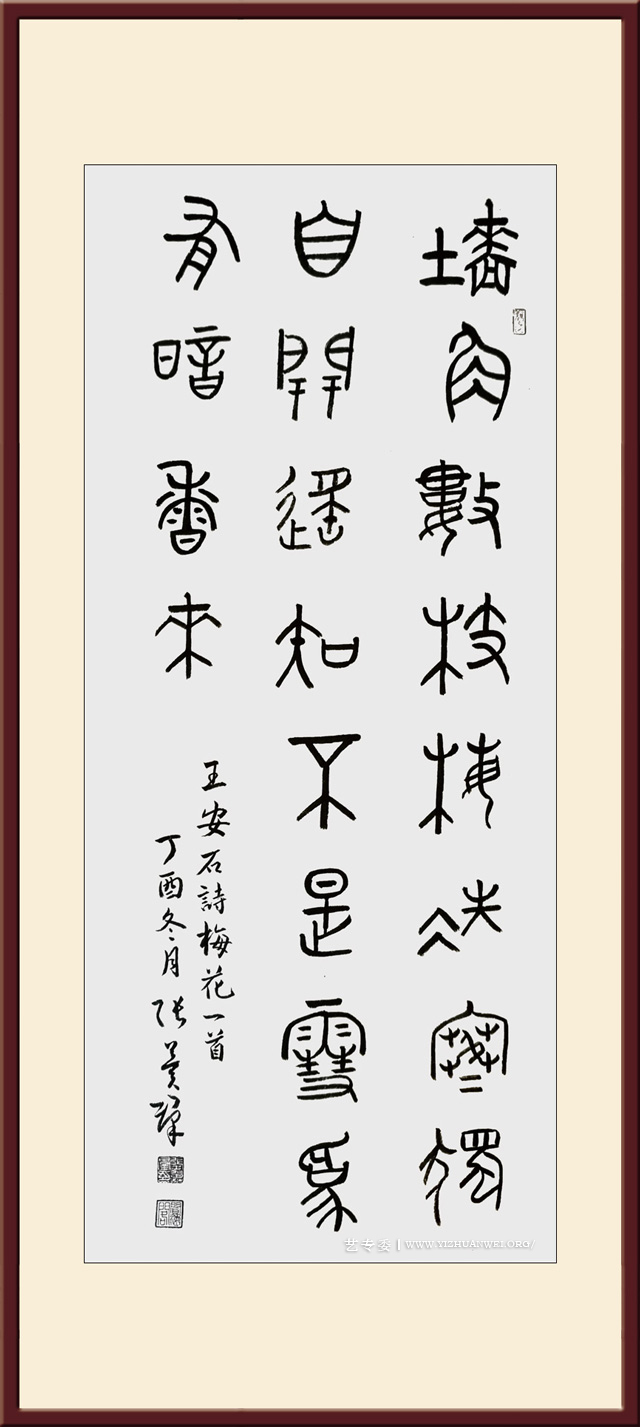 墻角數枝梅凌寒獨
自開遙知不是雪為
有暗香來
王安石詩梅花一首
丁酉冬月 張
艺专委 | WWW.YIZHUANWEI.ORG/